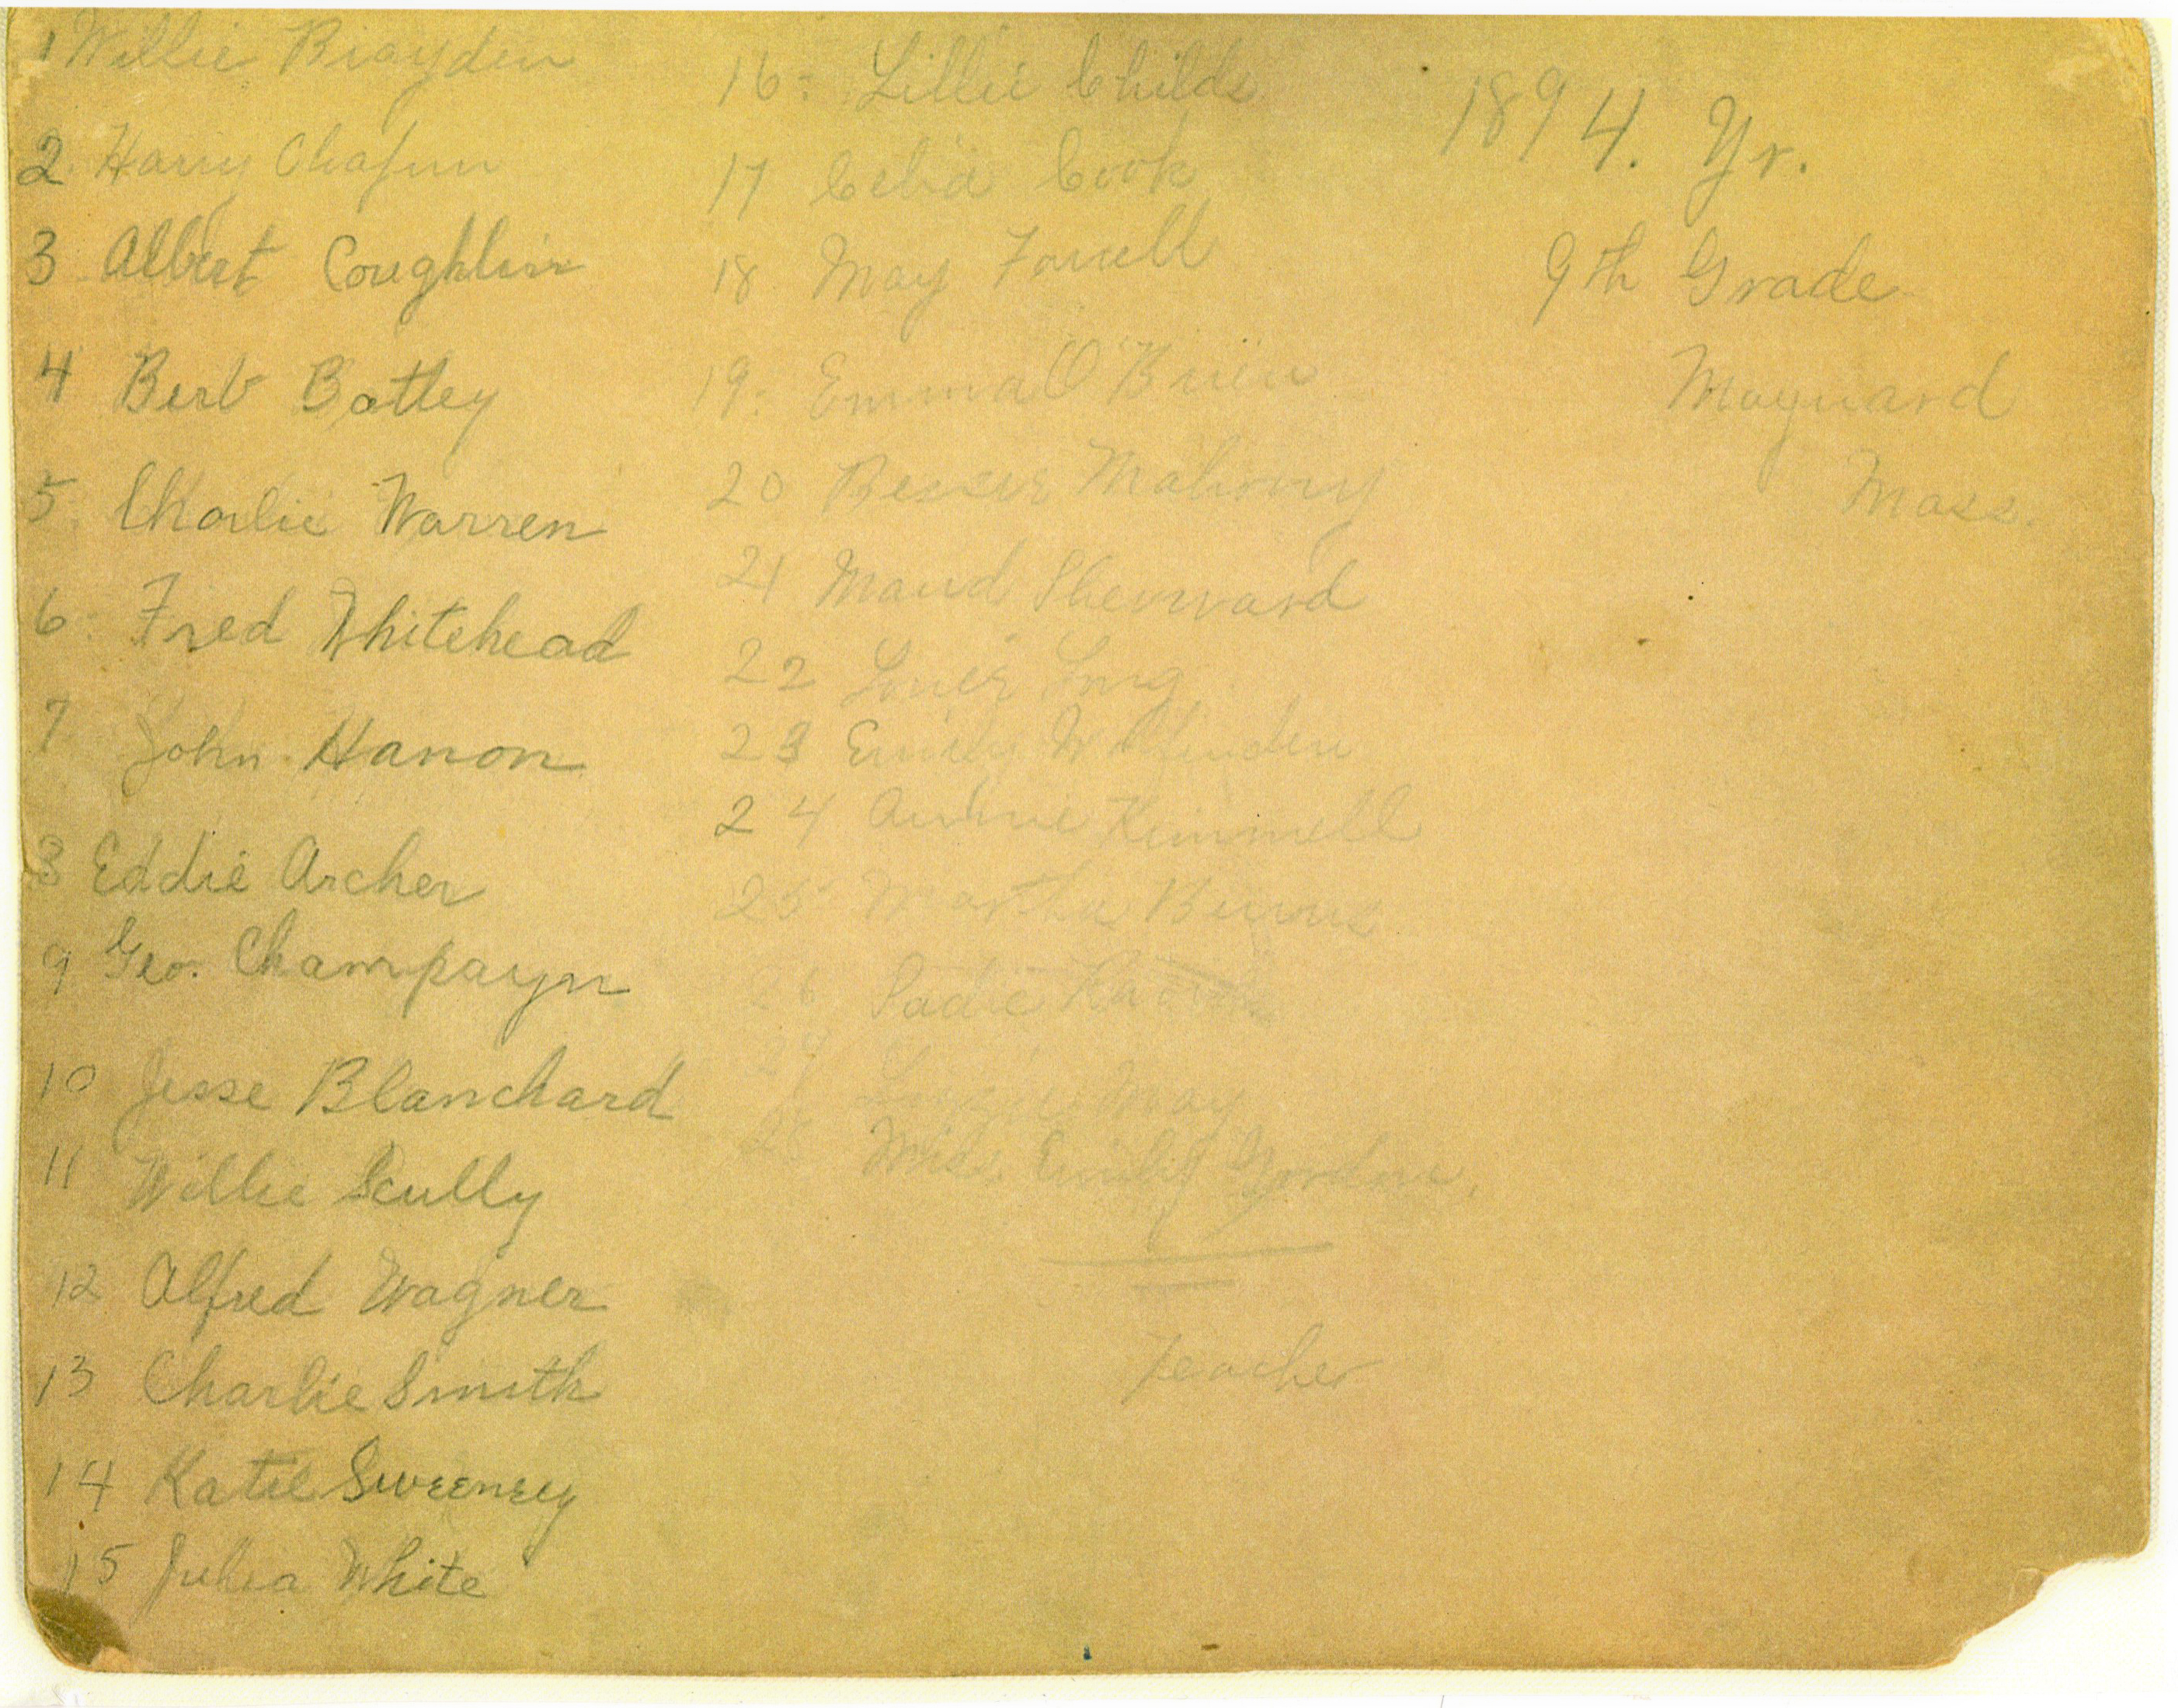 1 Willie Brayden
2. Harry Chafin
3 Albert Coughlin
4 Bert Batley
5. Charlie Warren
6. Fred Whitehead
7 John Hanon
8 Eddie Archer
9 Geo. Champayn
10 Jesse Blanchard
11 Willie Scully
12 Alfred Wagner
13 Charlie Smith
14 Katie Sweeney
15 Julia White
16. Lillie Childs
17 Celia Cook
18 May Farrell
19. Emma O'Brien
20 Bessie Mahoney
21 Maud Sherward
22 Long
23 Emily
24 Annie Kimmell
25 Martha Burns
26 Sadie
27 Lizzie May
28 Miss Emily Gordon.
Teacher
1894. Yr.
9th Grade
Maynard
Mass.